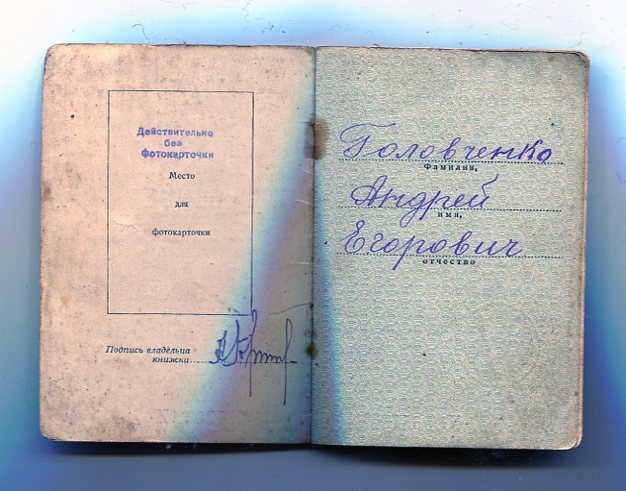 Действительно
без
Фотокарточки
Место
для
фотокарточки
Подпись владельца
книжки
Головченко
Фамилия,
Андрей
имя,
Егорович
отчество